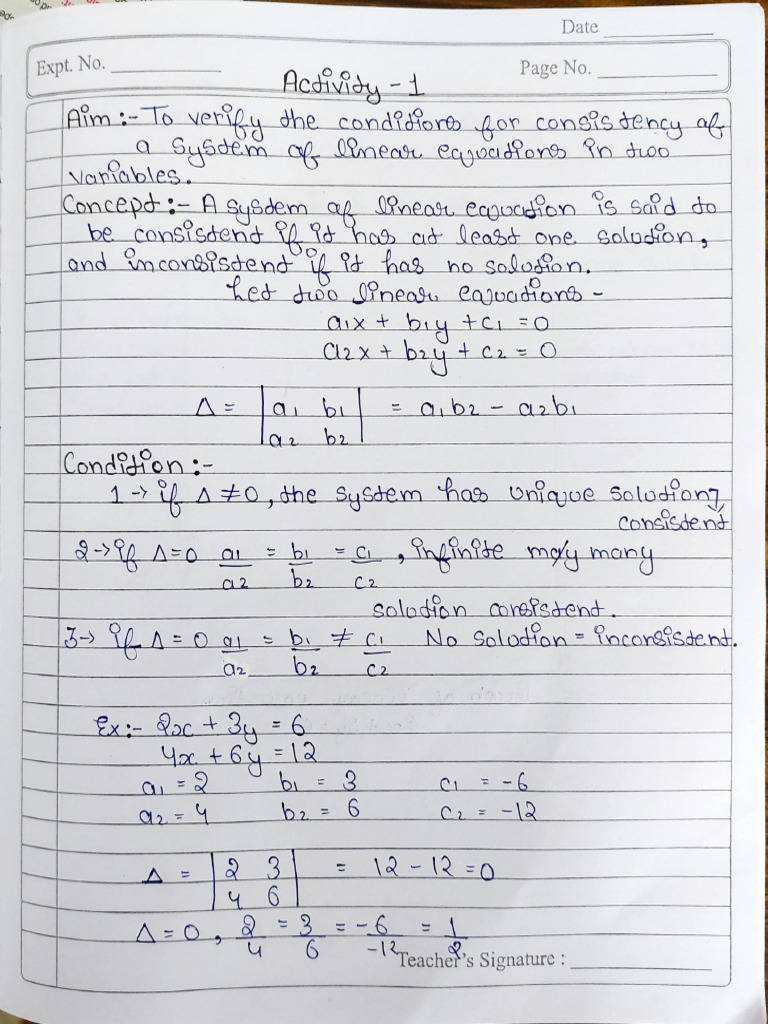 Date
Expt. No.
Page No.
Activity - 1
Aim :- To verify the conditions for consistency of
a system of linear equations in two
variables.
Concept :- A system of linear equation is said to
be consistent if it has at least one solution,
and inconsistent if it has no solution.
Let two linear equations -
a1x + b1y + c1 = 0
a2x + b2y + c2 = 0
Δ = |a1 b1| = a1b2 - a2b1
|a2 b2|
Condition :-
1 → if Δ ≠ 0, the system has unique solution,
consistent
2 → if Δ = 0 a1/a2 = b1/b2 = c1/c2, infinite many
solution consistent.
3 → if Δ = 0 a1/a2 = b1/b2 ≠ c1/c2 No solution = inconsistent.
Ex :- 2x + 3y = 6
4x + 6y = 12
a1 = 2 b1 = 3 c1 = -6
a2 = 4 b2 = 6 c2 = -12
Δ = |2 3| = 12 - 12 = 0
|4 6|
Δ = 0, 2/4 = 3/6 = -6/-12 = 1/2
Teacher's Signature :